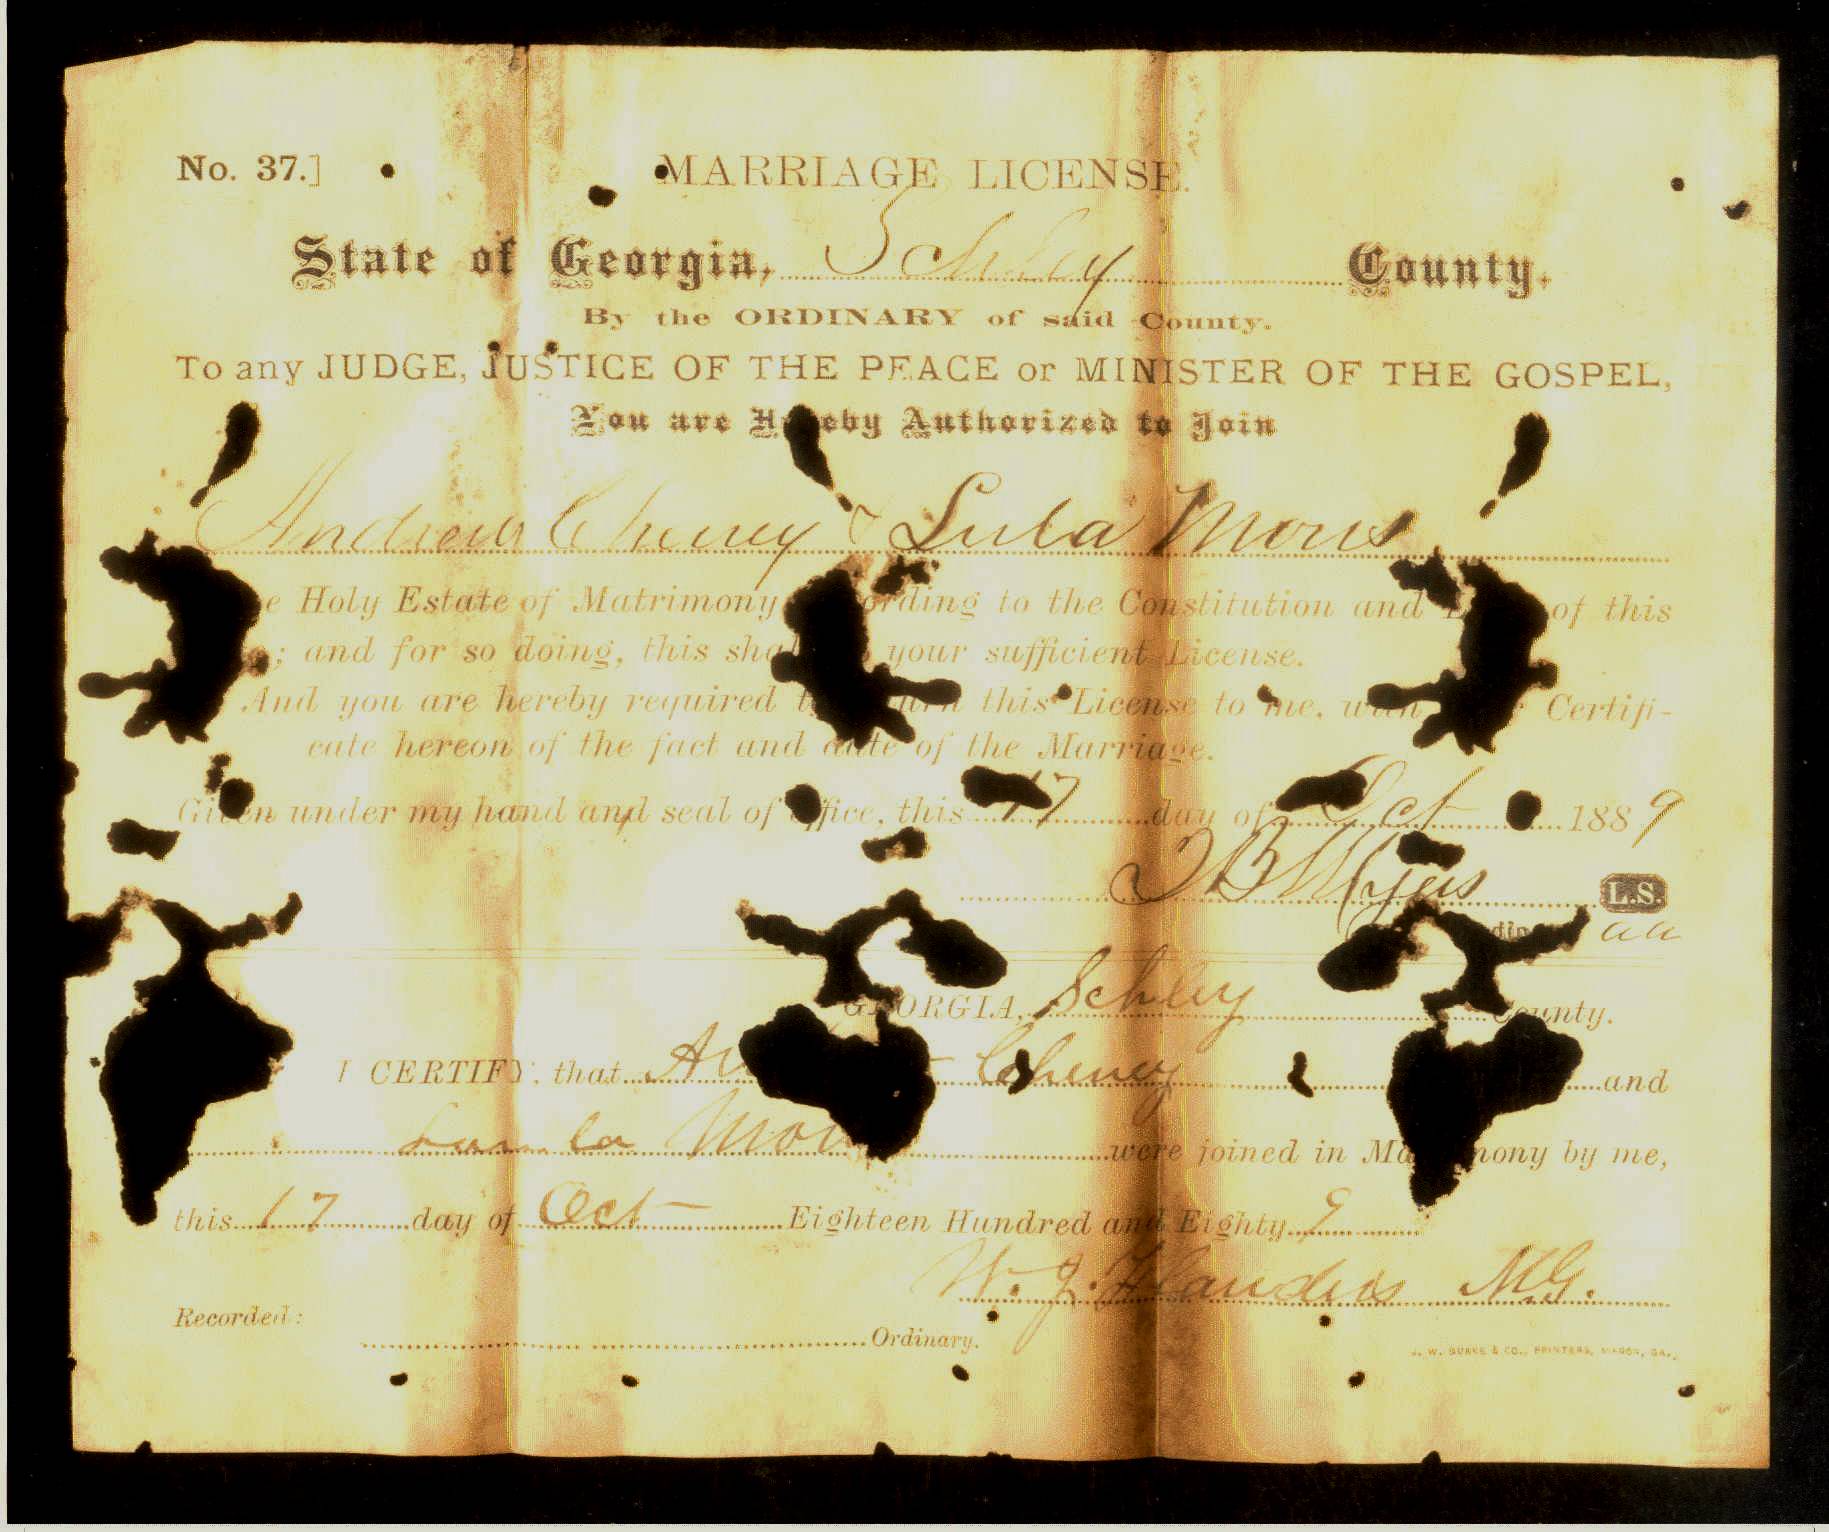 No. 37.] MARRIAGE LICENSE.
State of Georgia, Schley County.
By the ORDINARY of said County.
To any JUDGE, JUSTICE OF THE PEACE or MINISTER OF THE GOSPEL,
You are Hereby Authorized to Join
Andrew Cheney & Lula Moris
Holy Estate of Matrimony according to the Constitution and of this
; and for so doing, this shall your sufficient License.
And you are hereby required to return this License to me, with Certifi-
cate hereon of the fact and date of the Marriage.
Given under my hand and seal of office, this 17 day of Oct 1889
T B Myers L.S.
GEORGIA, Schley County.
I CERTIFY, that Cheney and
were joined in Matrimony by me,
this 17 day of Oct Eighteen Hundred and Eighty 9
W. J. Flanders M.G.
Recorded:
Ordinary.
J. W. BURKE & CO., PRINTERS, MACON, GA.